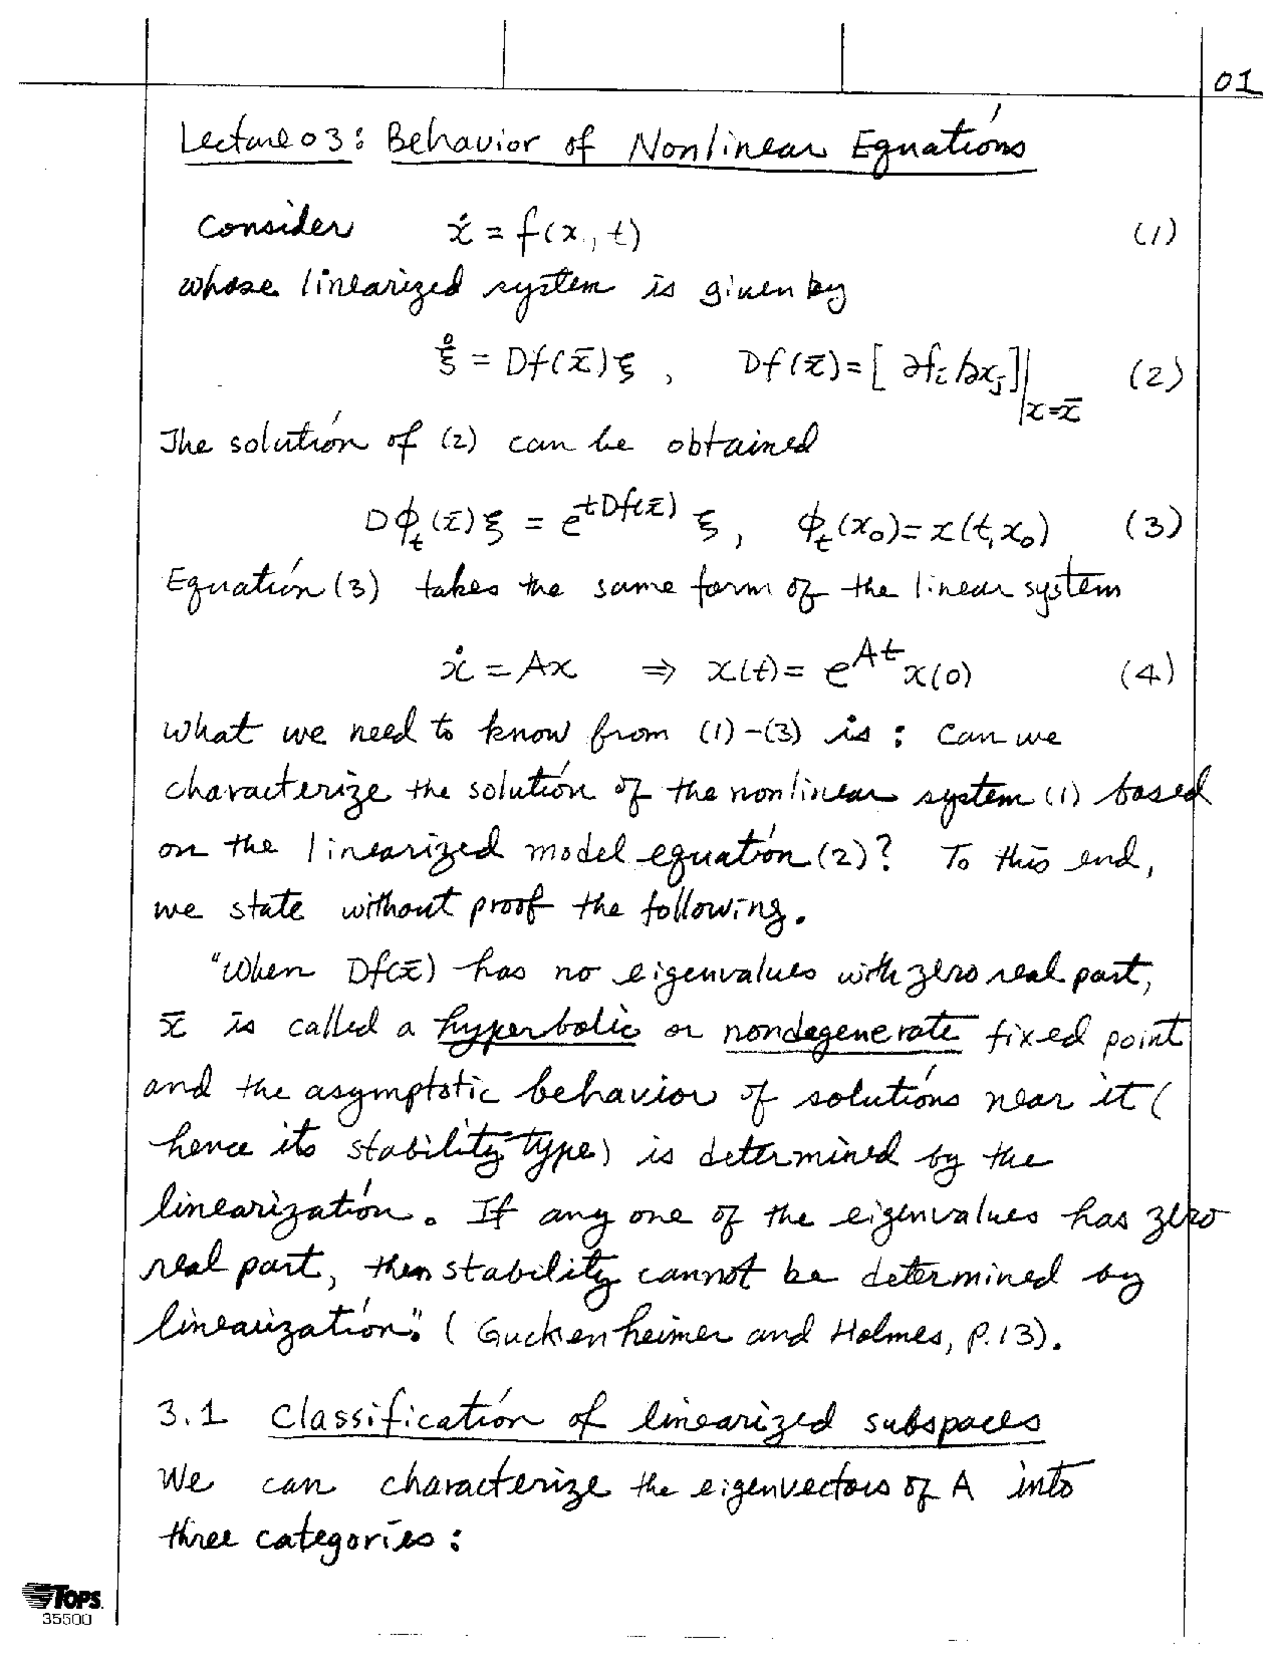 01
Lecture 03: Behavior of Nonlinear Equations
Consider ẋ = f(x, t) (1)
whose linearized system is given by
ξ̇ = Df(x̄)ξ, Df(x̄) = [∂fᵢ/∂xⱼ]|x=x̄ (2)
The solution of (2) can be obtained
Dϕₜ(x̄)ξ = e^{tDf(x̄)} ξ, ϕₜ(x₀) = x(t, x₀) (3)
Equation (3) takes the same form of the linear system
ẋ = Ax ⇒ x(t) = e^{At} x(0) (4)
What we need to know from (1)-(3) is : Can we
characterize the solution of the nonlinear system (1) based
on the linearized model equation (2)? To this end,
we state without proof the following.
"When Df(x̄) has no eigenvalues with zero real part,
x̄ is called a hyperbolic or nondegenerate fixed point
and the asymptotic behavior of solutions near it (
hence its stability type) is determined by the
linearization. If any one of the eigenvalues has zero
real part, then stability cannot be determined by
linearization." (Guckenheimer and Holmes, p.13).
3.1 Classification of linearized subspaces
We can characterize the eigenvectors of A into
three categories:
TOPS.
35500